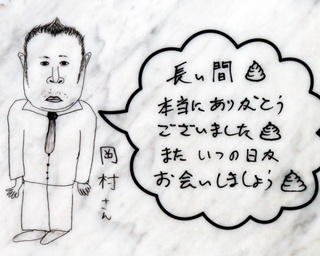 長い間
本当にありがとう
ございました
また いつの日か
お会いしましょう
岡村さん